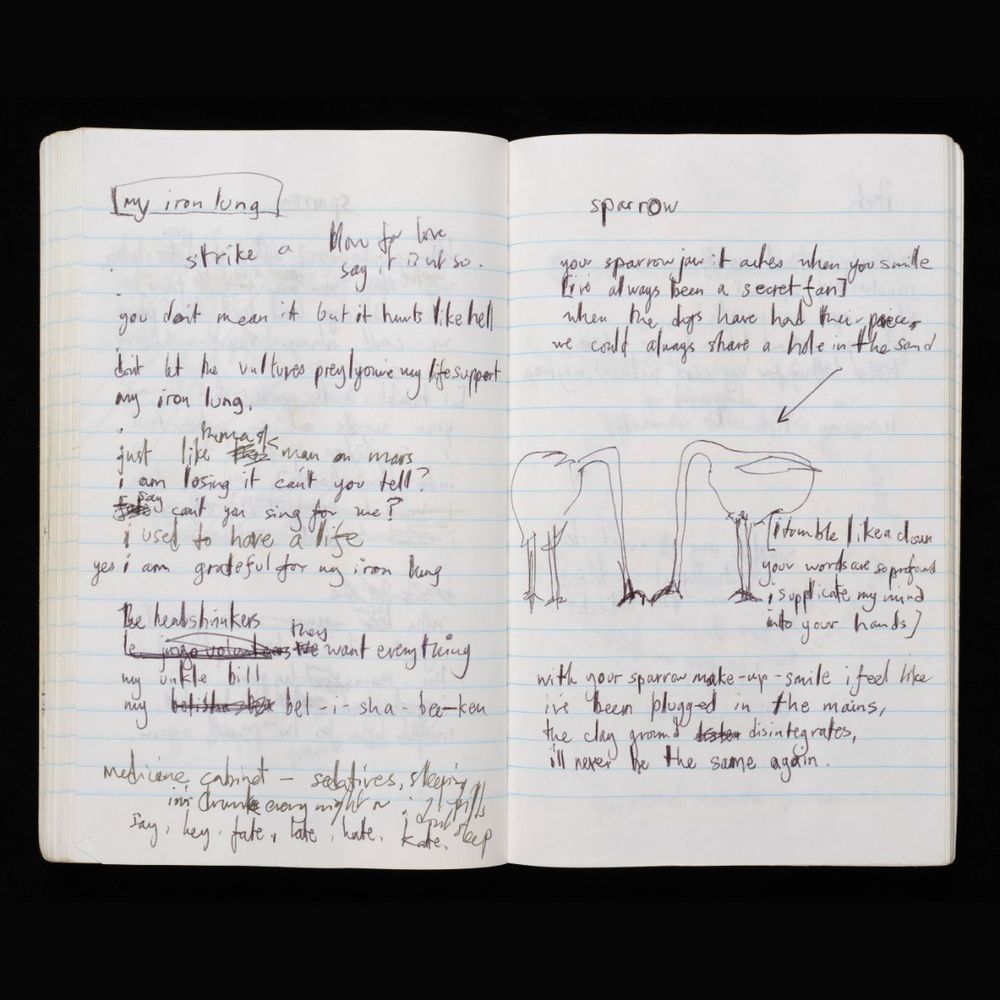 [my iron lung]
strike a blow for love
say it isn't so.
you don't mean it but it hurts like hell
don't let the vultures prey/you're my life support
my iron lung.
the mask
just like man on mars
i am losing it can't you tell?
say can't you sing for me?
i used to have a life
yes i am grateful for my iron lung
the headshrinkers
they want everything
my unkle bill
my bel-i-sha-bea-ken
medicine cabinet - sedatives, sleeping pills
ive drunk every night or i don't sleep
say, hey, fate, late, hate, kate,
sparrow
your sparrow jaw it aches when you smile
[i've always been a secret fan]
when the dogs have had their pieces
we could always share a hole in the sand
[i tumble like a clown
your words are so profound
i supplicate my mind
into your hands]
with your sparrow make-up-smile i feel like
i've been plugged in the mains,
the clay ground disintegrates,
i'll never be the same again.